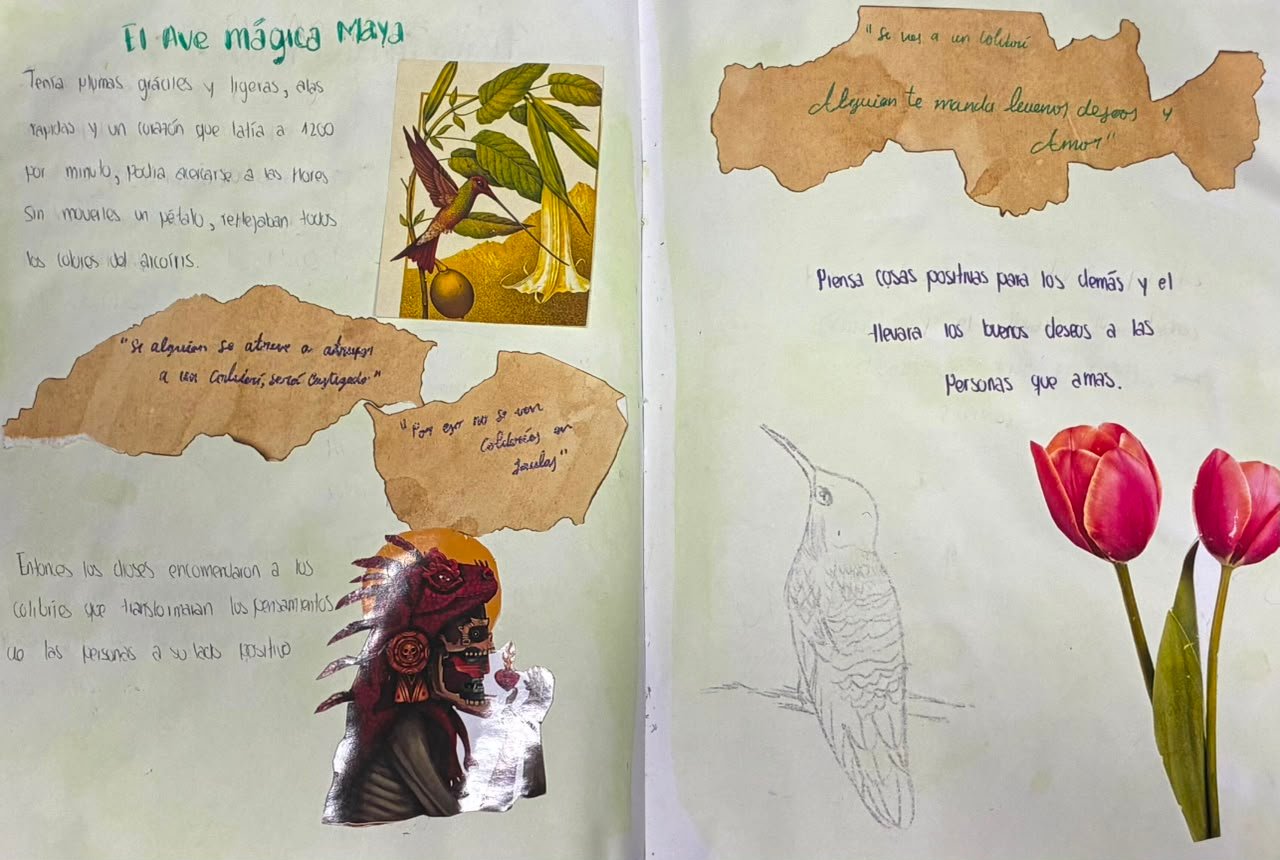 El Ave mágica Maya
Tenía plumas gráciles y ligeras, alas
rapidas y un corazón que latía a 1200
por minuto, podia acercarse a las flores
Sin moverles un pétalo, reflejaban todos
los colores del arcoíris.
"Si alguien se atreve a atrapar
a un Colibrí, será Castigado."
"Por eso no se ven
Colibríes en
Jaulas"
Entonces los dioses encomendaron a los
colibríes que transformaran los pensamientos
de las personas a su lado positivo
"Si ves a un Colibrí
Alguien te manda buenos deseos y
Amor"
Piensa cosas positivas para los demás y el
llevara los buenos deseos a las
Personas que amas.